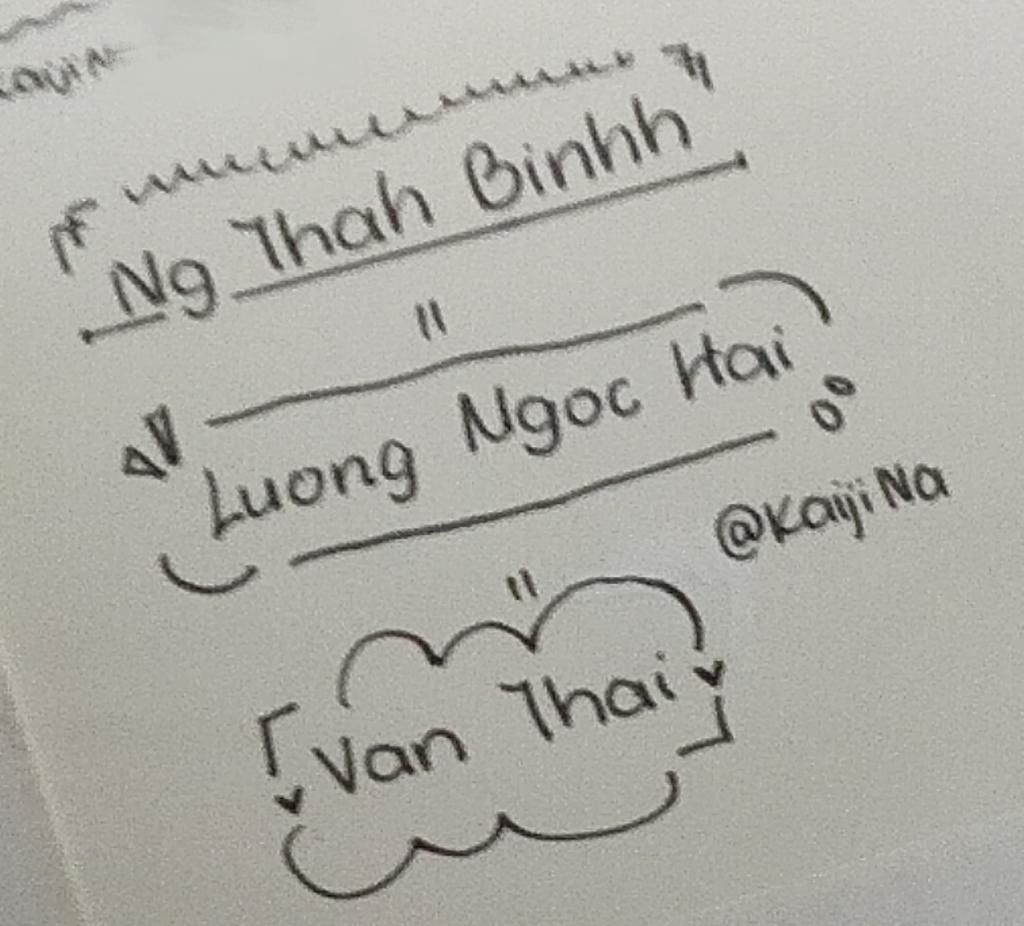 Ng Thah Binhh
Luong Ngoc Hai
@KaijiNa
Van Thai